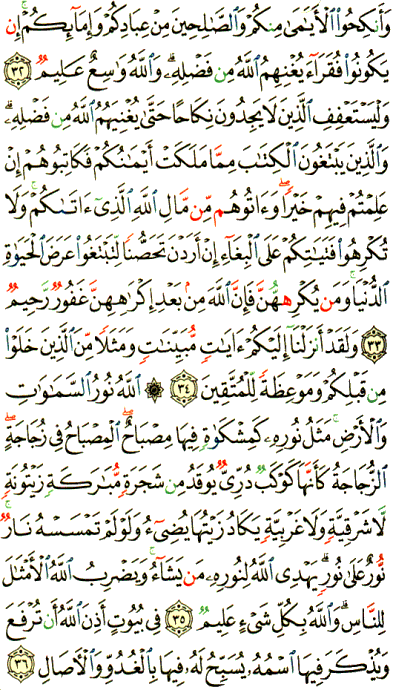 وَأَنكِحُوا۟ ٱلْأَيَـٰمَىٰ مِنكُمْ وَٱلصَّـٰلِحِينَ مِنْ عِبَادِكُمْ وَإِمَآئِكُمْ ۚ إِن
يَكُونُوا۟ فُقَرَآءَ يُغْنِهِمُ ٱللَّهُ مِن فَضْلِهِۦ ۗ وَٱللَّهُ وَٰسِعٌ عَلِيمٌ ٣٢
وَلْيَسْتَعْفِفِ ٱلَّذِينَ لَا يَجِدُونَ نِكَاحًا حَتَّىٰ يُغْنِيَهُمُ ٱللَّهُ مِن فَضْلِهِۦ ۗ
وَٱلَّذِينَ يَبْتَغُونَ ٱلْكِتَـٰبَ مِمَّا مَلَكَتْ أَيْمَـٰنُكُمْ فَكَاتِبُوهُمْ إِنْ
عَلِمْتُمْ فِيهِمْ خَيْرًا ۖ وَءَاتُوهُم مِّن مَّالِ ٱللَّهِ ٱلَّذِىٓ ءَاتَىٰكُمْ ۚ وَلَا
تُكْرِهُوا۟ فَتَيَـٰتِكُمْ عَلَى ٱلْبِغَآءِ إِنْ أَرَدْنَ تَحَصُّنًا لِّتَبْتَغُوا۟ عَرَضَ ٱلْحَيَوٰةِ
ٱلدُّنْيَا ۚ وَمَن يُكْرِههُّنَّ فَإِنَّ ٱللَّهَ مِنۢ بَعْدِ إِكْرَٰهِهِنَّ غَفُورٌ رَّحِيمٌ
٣٣ وَلَقَدْ أَنزَلْنَآ إِلَيْكُمْ ءَايَـٰتٍ مُّبَيِّنَـٰتٍ وَمَثَلًا مِّنَ ٱلَّذِينَ خَلَوْا۟
مِن قَبْلِكُمْ وَمَوْعِظَةً لِّلْمُتَّقِينَ ٣٤ ۞ ٱللَّهُ نُورُ ٱلسَّمَـٰوَٰتِ
وَٱلْأَرْضِ ۚ مَثَلُ نُورِهِۦ كَمِشْكَوٰةٍ فِيهَا مِصْبَاحٌ ۖ ٱلْمِصْبَاحُ فِى زُجَاجَةٍ ۖ
ٱلزُّجَاجَةُ كَأَنَّهَا كَوْكَبٌ دُرِّىٌّ يُوقَدُ مِن شَجَرَةٍ مُّبَـٰرَكَةٍ زَيْتُونَةٍ
لَّا شَرْقِيَّةٍ وَلَا غَرْبِيَّةٍ يَكَادُ زَيْتُهَا يُضِىٓءُ وَلَوْ لَمْ تَمْسَسْهُ نَارٌ ۚ
نُّورٌ عَلَىٰ نُورٍ ۗ يَهْدِى ٱللَّهُ لِنُورِهِۦ مَن يَشَآءُ ۚ وَيَضْرِبُ ٱللَّهُ ٱلْأَمْثَـٰلَ
لِلنَّاسِ ۗ وَٱللَّهُ بِكُلِّ شَىْءٍ عَلِيمٌ ٣٥ فِى بُيُوتٍ أَذِنَ ٱللَّهُ أَن تُرْفَعَ
وَيُذْكَرَ فِيهَا ٱسْمُهُۥ يُسَبِّحُ لَهُۥ فِيهَا بِٱلْغُدُوِّ وَٱلْـَٔاصَالِ ٣٦